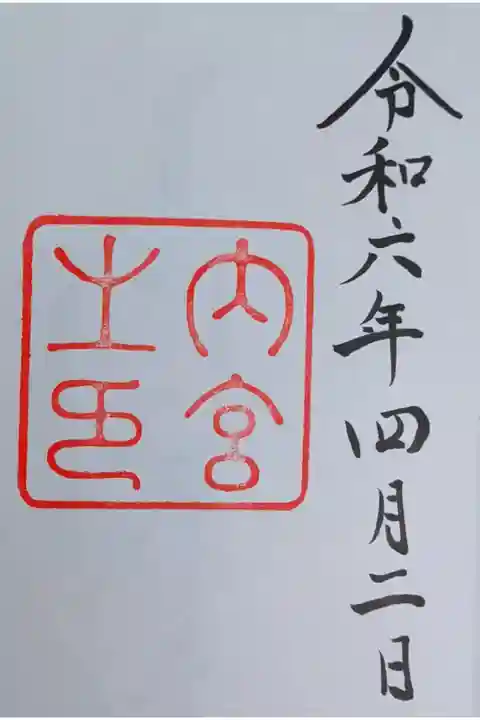 令和六年四月二日
内宮
之印